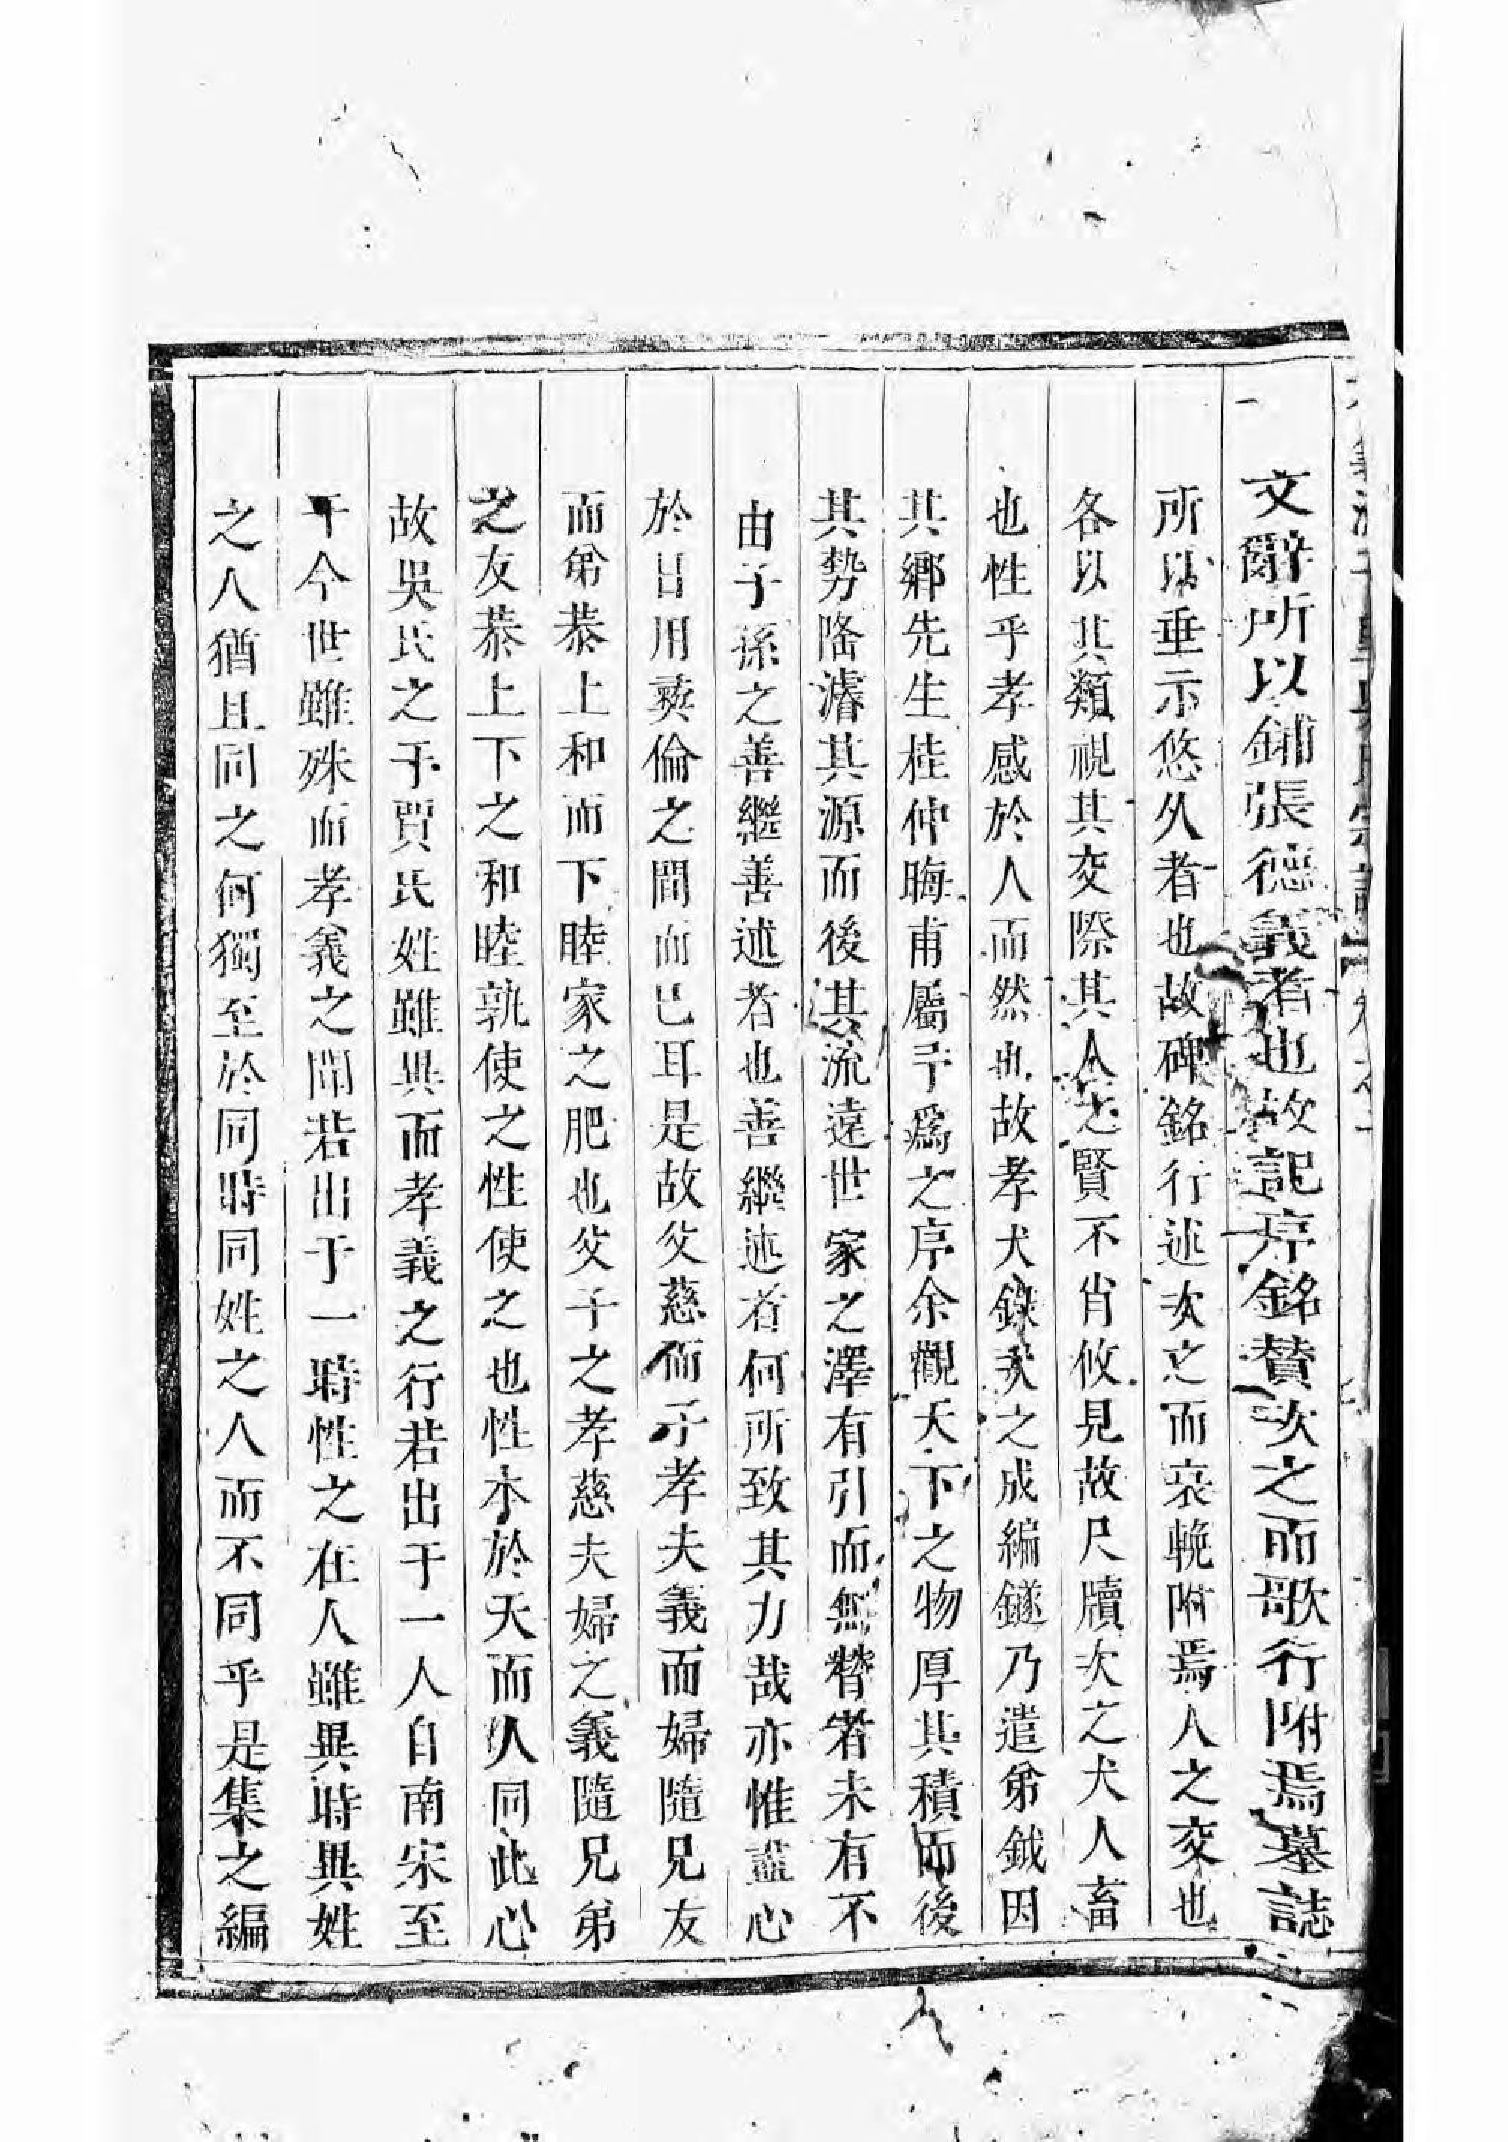 文辭所以鋪張德義者也故記序銘贊次之而歌行附焉墓誌
所以垂示悠久者也故碑銘行述次之而哀輓附焉人之交也
各以其類視其交際其人之賢不肖攸見故尺牘次之犬人畜
也性乎孝感於人而然也故孝犬錄次之成編鐩乃遣弟鉞因
其鄉先生桂仲晦甫屬予爲之序余觀天下之物厚其積而後
其勢隆濬其源而後其流遠世家之澤有引而無替者未有不
由子孫之善繼善述者也善繼述者何所致其力哉亦惟盡心
於日用彜倫之間而已耳是故父慈而子孝夫義而婦隨兄友
而弟恭上和而下睦家之肥也父子之孝慈夫婦之義隨兄弟
之友恭上下之和睦孰使之性使之也性本於天而人同此心
故吳氏之于賈氏姓雖異而孝義之行若出于一人自南宋至
于今世雖殊而孝義之聞若出于一時性之在人雖異時異姓
之人猶且同之何獨至於同時同姓之人而不同乎是集之編